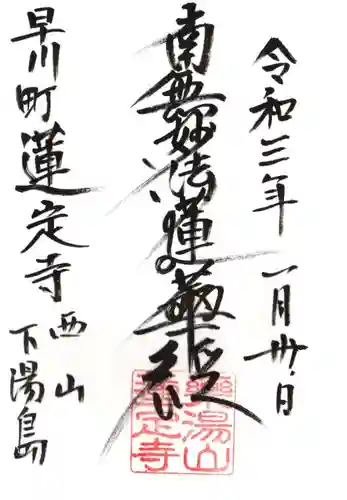 令和三年一月卅日
南無妙法蓮華経
早川町蓮定寺
西山
下湯島
樂湯山
蓮定寺